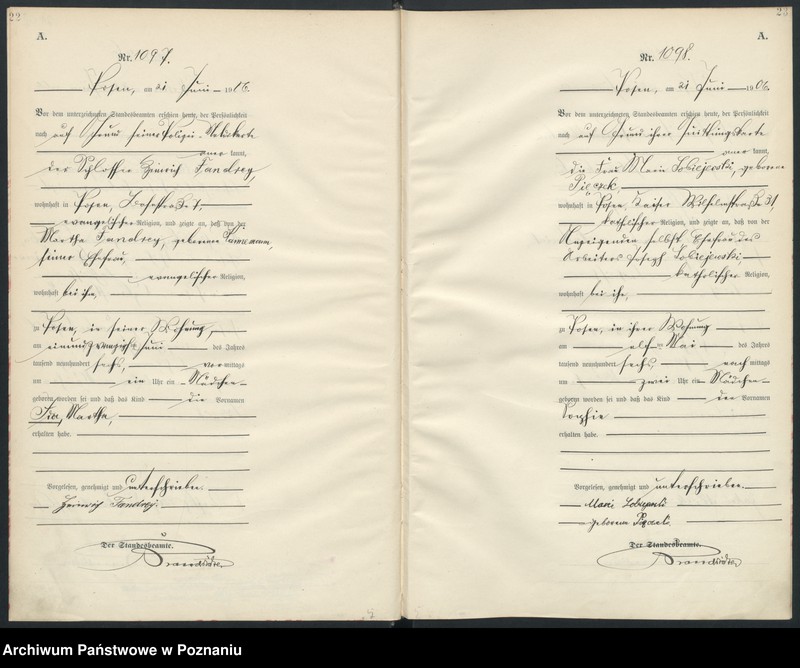 22
A.
Nr. 1097.
Posen, am 21 Juni 1906.
Vor dem unterzeichneten Standesbeamten erschien heute, der Persönlichkeit
nach auf Grund seiner Polizei-Meldekarte
kannt,
der Schlosser Heinrich
wohnhaft in Posen,
evangelischer Religion, und zeigte an, daß von der
Martha geborenen
seiner Ehefrau,
evangelischer Religion,
wohnhaft bei ihm,
zu Posen, in seiner Wohnung,
am einundzwanzigsten Juni des Jahres
tausend neunhundert sechs, vormittags
um ein Uhr ein Mädchen
geboren worden sei und daß das Kind die Vornamen
Martha,
erhalten habe.
Vorgelesen, genehmigt und unterschrieben.
Heinrich
Der Standesbeamte.
23
A.
Nr. 1098.
Posen, am 21 Juni 1906.
Vor dem unterzeichneten Standesbeamten erschien heute, der Persönlichkeit
nach auf Grund ihrer Quittungskarte
kannt,
die Frau Maria Sobiejewski, geborene
wohnhaft in Posen, Kaiser Wilhelmstraße 31
katholischer Religion, und zeigte an, daß von der
Anzeigenden selbst, Ehefrau des
Arbeiters Joseph Sobiejewski,
katholischer Religion,
wohnhaft bei ihr,
zu Posen, in ihrer Wohnung
am elften Mai des Jahres
tausend neunhundert sechs, nachmittags
um zwei Uhr ein Mädchen
geboren worden sei und daß das Kind den Vornamen
Sophie
erhalten habe.
Vorgelesen, genehmigt und unterschrieben.
geborene
Der Standesbeamte.
Archiwum Państwowe w Poznaniu